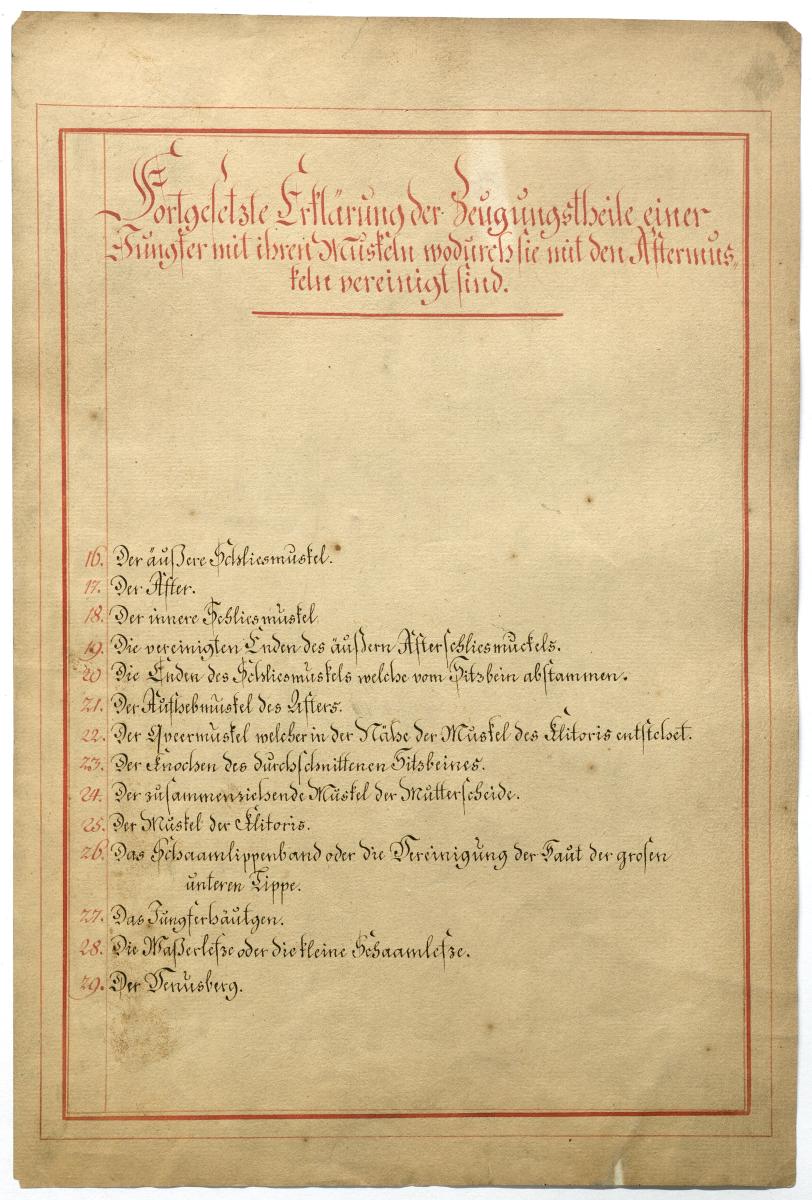 Fortgesetzte Erklärung der Zeugungstheile einer
Jungfer mit ihren Muskeln wodurch sie mit den Aftermus,,
keln vereinigt sind.
16. Der äußere Schliesmuskel.
17. Der After.
18. Der innere Schliesmuskel
19. Die vereinigten Enden des äußern Afterschliesmuckels.
20 Die Enden des Schliesmuskels welche vom Sitzbein abstammen.
21. Der Aufhebmuskel des Afters.
22. Der Qveermuskel welcher in der Nähe der Muskel des Klitoris entstehet.
23. Der Knochen des durchschnittenen Sitzbeines.
24. Der zusammenziehende Muskel der Mutterscheide.
25. Der Muskel der Klitoris.
26. Das Schaamlippenband oder die Vereinigung der Haut der grosen
unteren Lippe.
27. Das Jungferhäutgen.
28. Die Waßerlefze oder die kleine Schaamlefze.
29. Der Venusberg.